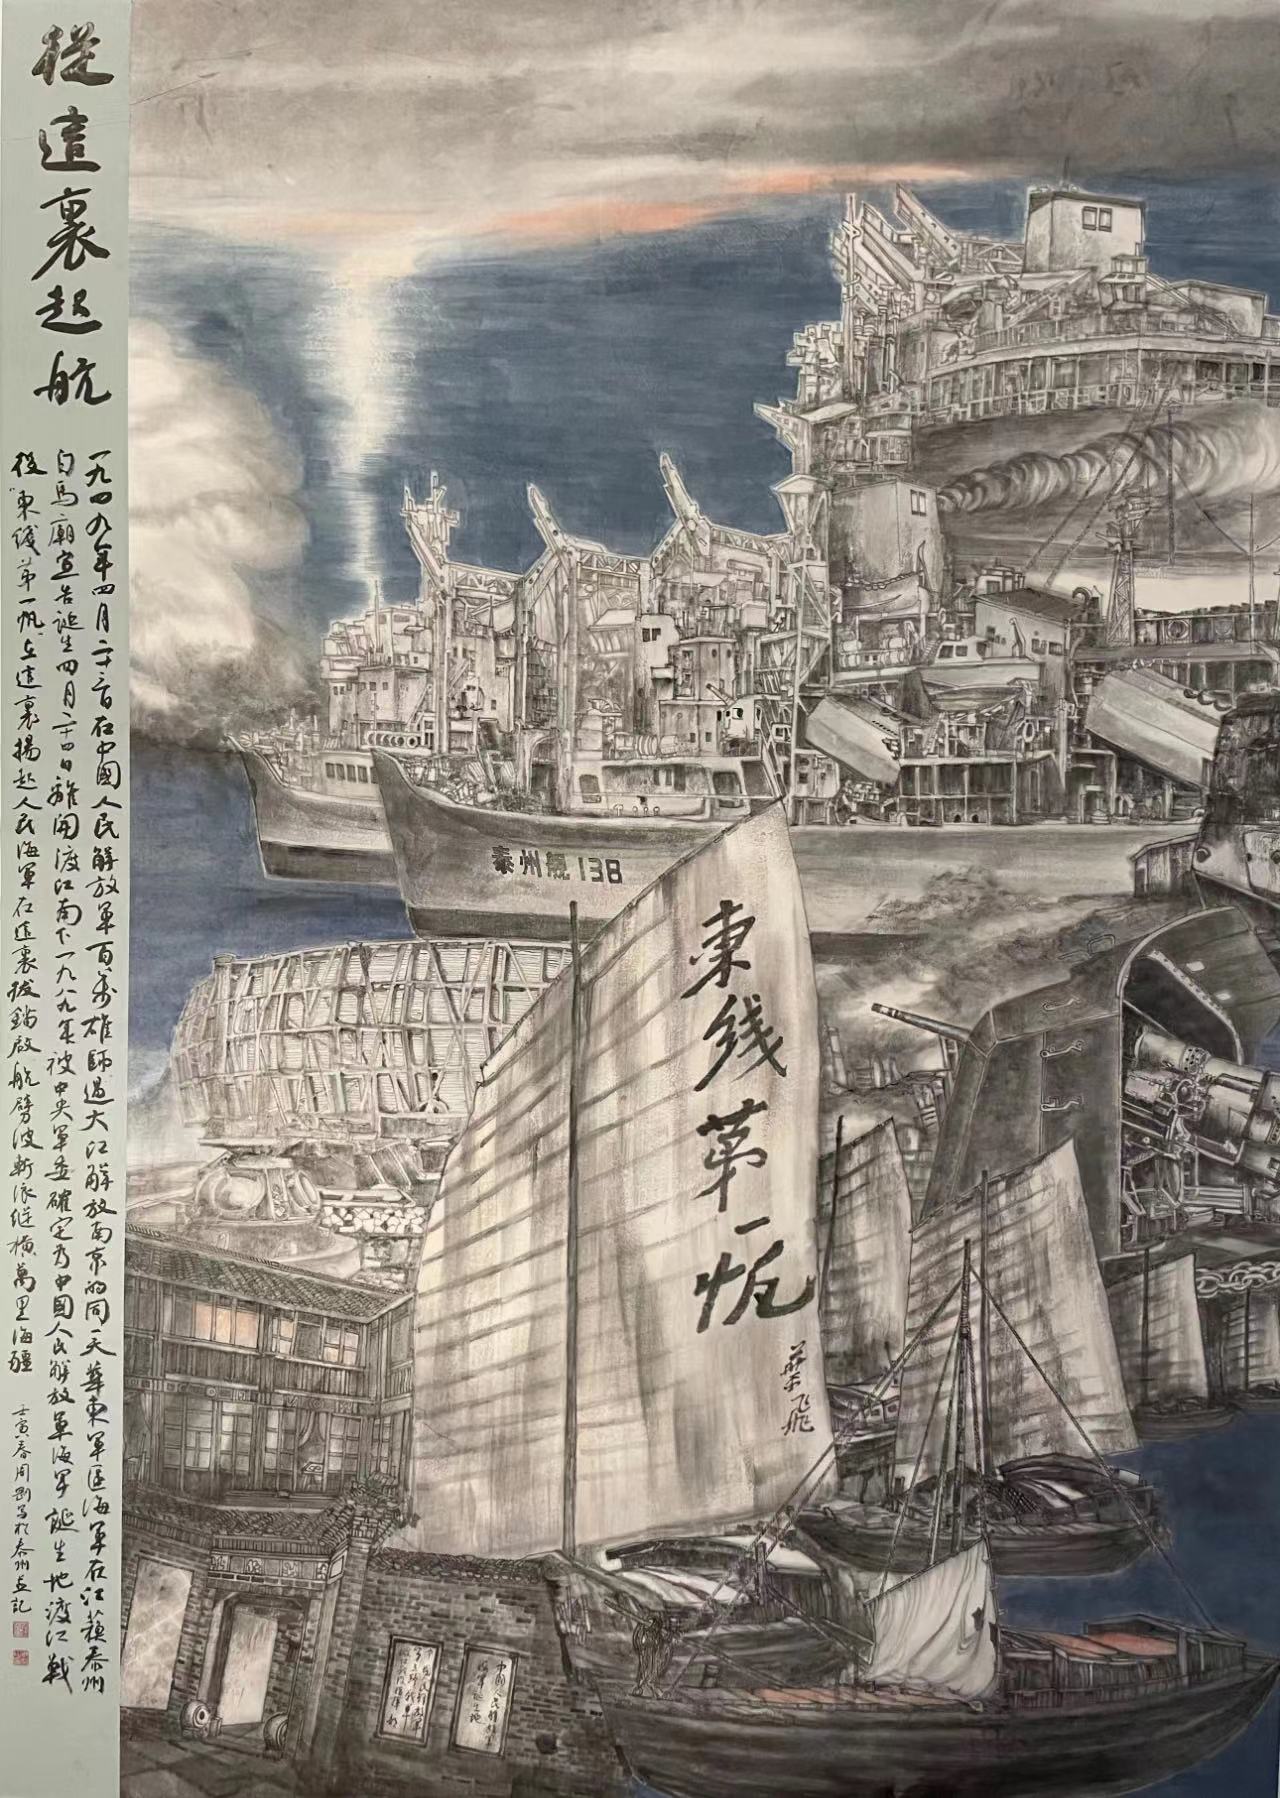 從這裏起航
一九四九年四月二十三日在中國人民解放軍百萬雄師過大江解放南京的同一天華東軍區海軍在江蘇泰州
白馬廟宣告誕生四月二十四日離開渡江南下一九八九年被中央軍委確定为中國人民解放軍海軍誕生地渡江戰
役"東綫第一帆"在這裏揚起人民海軍在這裏拔錨啟航劈波斬浪縱橫萬里海疆
壬寅春周剛寫於泰州並記
泰州舰138
東线第一帆
葉飛
中國人民解放軍
海軍誕生地